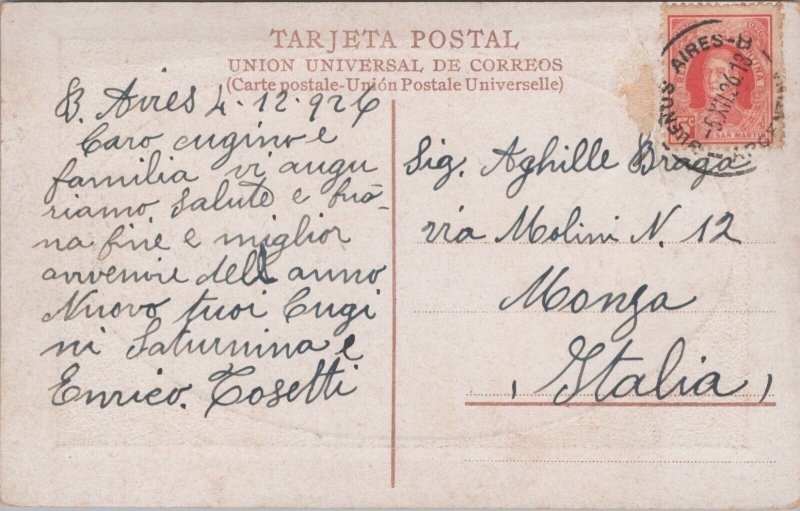 TARJETA POSTAL
UNION UNIVERSAL DE CORREOS
(Carte postale-Unión Postale Universelle)
B. Aires 4.12.926
Caro cugino e
familia vi augu
riamo salute e buo-
na fine e miglior
avvenire dell anno
Nuovo tuoi Cugi
ni Saturnina e
Enrico. Tosetti
Sig. Aghille Braga
via Molini N. 12
Monza
(Italia)
BUENOS AIRES-B
5.XII.26 18
SAN MARTIN